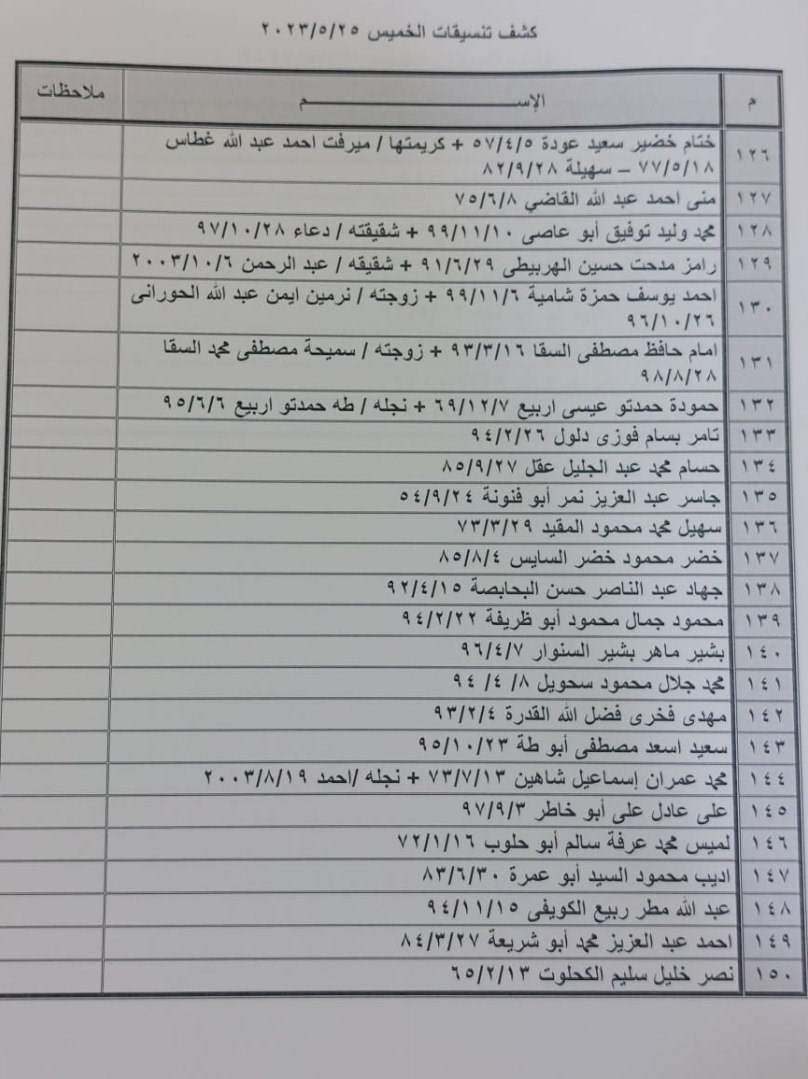 كشف تنسيقات الخميس ٢٠٢٣/٥/٢٥
م الإســـــــــم ملاحظات
١٢٦ ختام خضير سعيد عودة ٥٧/٤/٥ + كريمتها / ميرفت احمد عبد الله غطاس
٧٧/٥/١٨ – سهيلة ٨٢/٩/٢٨
١٢٧ منى احمد عبد الله القاضي ٧٥/٦/٨
١٢٨ محمد وليد توفيق أبو عاصى ٩٩/١١/١٠ + شقيقته / دعاء ٩٧/١٠/٢٨
١٢٩ رامز مدحت حسين الهربيطى ٩١/٦/٢٩ + شقيقه / عبد الرحمن ٢٠٠٣/١٠/٦
١٣٠ احمد يوسف حمزة شامية ٩٩/١١/٦ + زوجته / نرمين ايمن عبد الله الحورانى
٩٦/١٠/٢٦
١٣١ امام حافظ مصطفى السقا ٩٣/٣/١٦ + زوجته / سميحة مصطفى محمد السقا
٩٨/٨/٢٨
١٣٢ حمودة حمدتو عيسى اربيع ٦٩/١٢/٧ + نجله / طه حمدتو اربيع ٩٥/٦/٦
١٣٣ تامر بسام فوزى دلول ٩٤/٢/٢٦
١٣٤ حسام محمد عبد الجليل عقل ٨٥/٩/٢٧
١٣٥ جاسر عبد العزيز نمر أبو فنونة ٥٤/٩/٢٤
١٣٦ سهيل محمد محمود المقيد ٧٣/٣/٢٩
١٣٧ خضر محمود خضر السايس ٨٥/٨/٤
١٣٨ جهاد عبد الناصر حسن البحابصة ٩٢/٤/١٥
١٣٩ محمود جمال محمود أبو ظريفة ٩٤/٢/٢٢
١٤٠ بشير ماهر بشير السنوار ٩٦/٤/٧
١٤١ محمد جلال محمود سحويل ٨/ ٤/ ٩٤
١٤٢ مهدى فخرى فضل الله القدرة ٩٣/٢/٤
١٤٣ سعيد اسعد مصطفى أبو طة ٩٥/١٠/٢٣
١٤٤ محمد عمران إسماعيل شاهين ٧٣/٧/١٣ + نجله /احمد ٢٠٠٣/٨/١٩
١٤٥ على عادل على أبو خاطر ٩٧/٩/٣
١٤٦ لميس محمد عرفة سالم أبو حلوب ٧٢/١/١٦
١٤٧ اديب محمود السيد أبو عمرة ٨٣/٦/٣٠
١٤٨ عبد الله مطر ربيع الكويفى ٩٤/١١/١٥
١٤٩ احمد عبد العزيز محمد أبو شريعة ٨٤/٣/٢٧
١٥٠ نصر خليل سليم الكحلوت ٦٥/٢/١٣